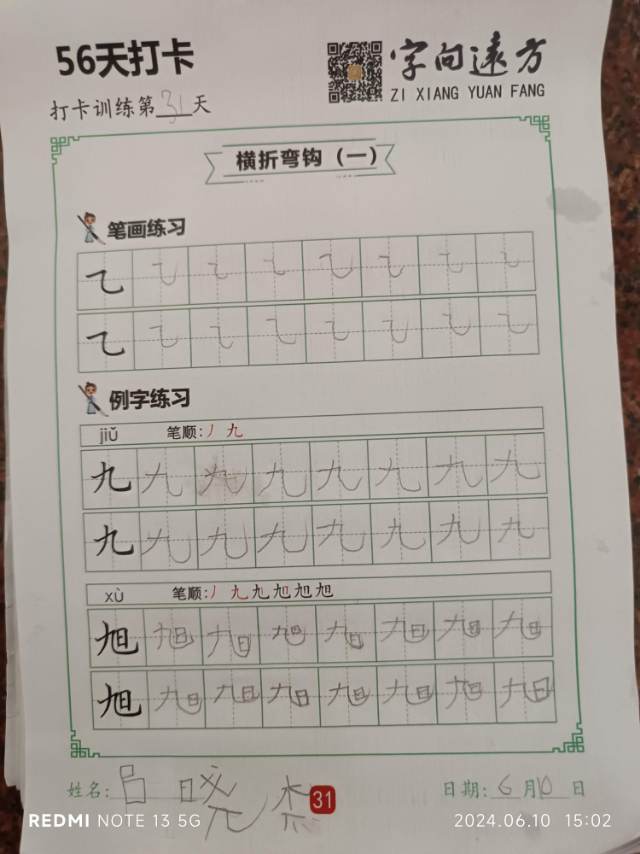 56天打卡
字向远方
ZI XIANG YUAN FANG
打卡训练第31天
横折弯钩（一）
笔画练习
乙 乙 乙 乙 乙 乙 乙 乙
乙 乙 乙 乙 乙 乙 乙 乙
例字练习
jiǔ 笔顺:丿 九
九 九 九 九 九 九 九 九
九 九 九 九 九 九 九 九
xù 笔顺:丿 九 旭 旭 旭 旭
旭 旭 旭 旭 旭 旭 旭 旭
旭 旭 旭 旭 旭 旭 旭 旭
姓名: 吕 晓 杰 31 日期: 6月10日
REDMI NOTE 13 5G 2024.06.10 15:02